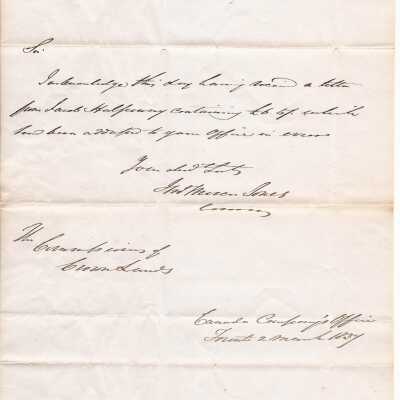 Sir
I acknowledge this day having received a letter
from Jacob Halfpenny containing £6 which
had been addressed to your Office in error
Your obedt Servt
Thos Mercer Jones
The
Commissioner of
Crown Lands
Canada Company's Office
Toronto 2 March 1837